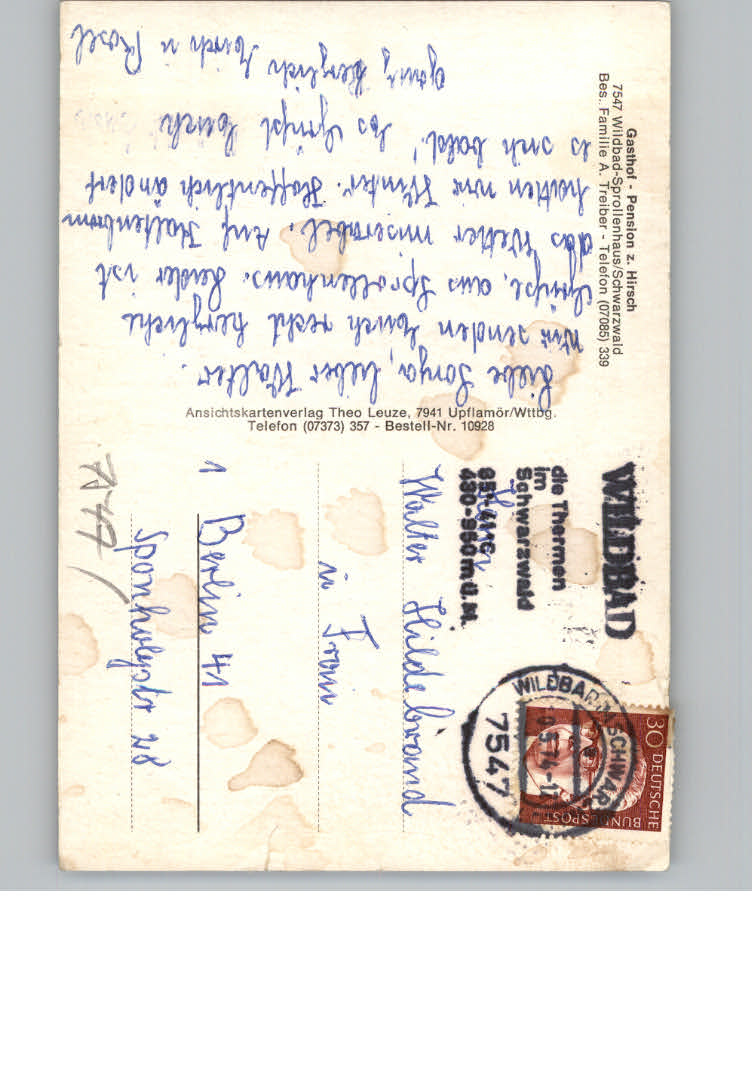 Gasthof - Pension z. Hirsch
7547 Wildbad-Sprollenhaus/Schwarzwald
Bes. Familie A. Treiber - Telefon (07085) 339
Liebe Sonya, lieber Walter.
Wir senden Euch recht herzliche
Grüße, aus Sprollenhaus. Leider ist
das Wetter miserabel. Auf Kaltenbronn
hatten wir Winter. Hoffentlich ändert
es sich bald! Es grüßt Euch
ganz herzlich Erich u Rosel
Ansichtskartenverlag Theo Leuze, 7941 Upflamör/Wttbg.
Telefon (07373) 357 - Bestell-Nr. 10928
WILDBAD
die Thermen
im
Schwarzwald
430-950m ü.M.
WILDBAD SCHWARZ
7547
30 DEUTSCHE
BUNDESPOST
Herrn
Walter Hildebrand
u Frau
1 Berlin 41
Sponholzstr 28
7547